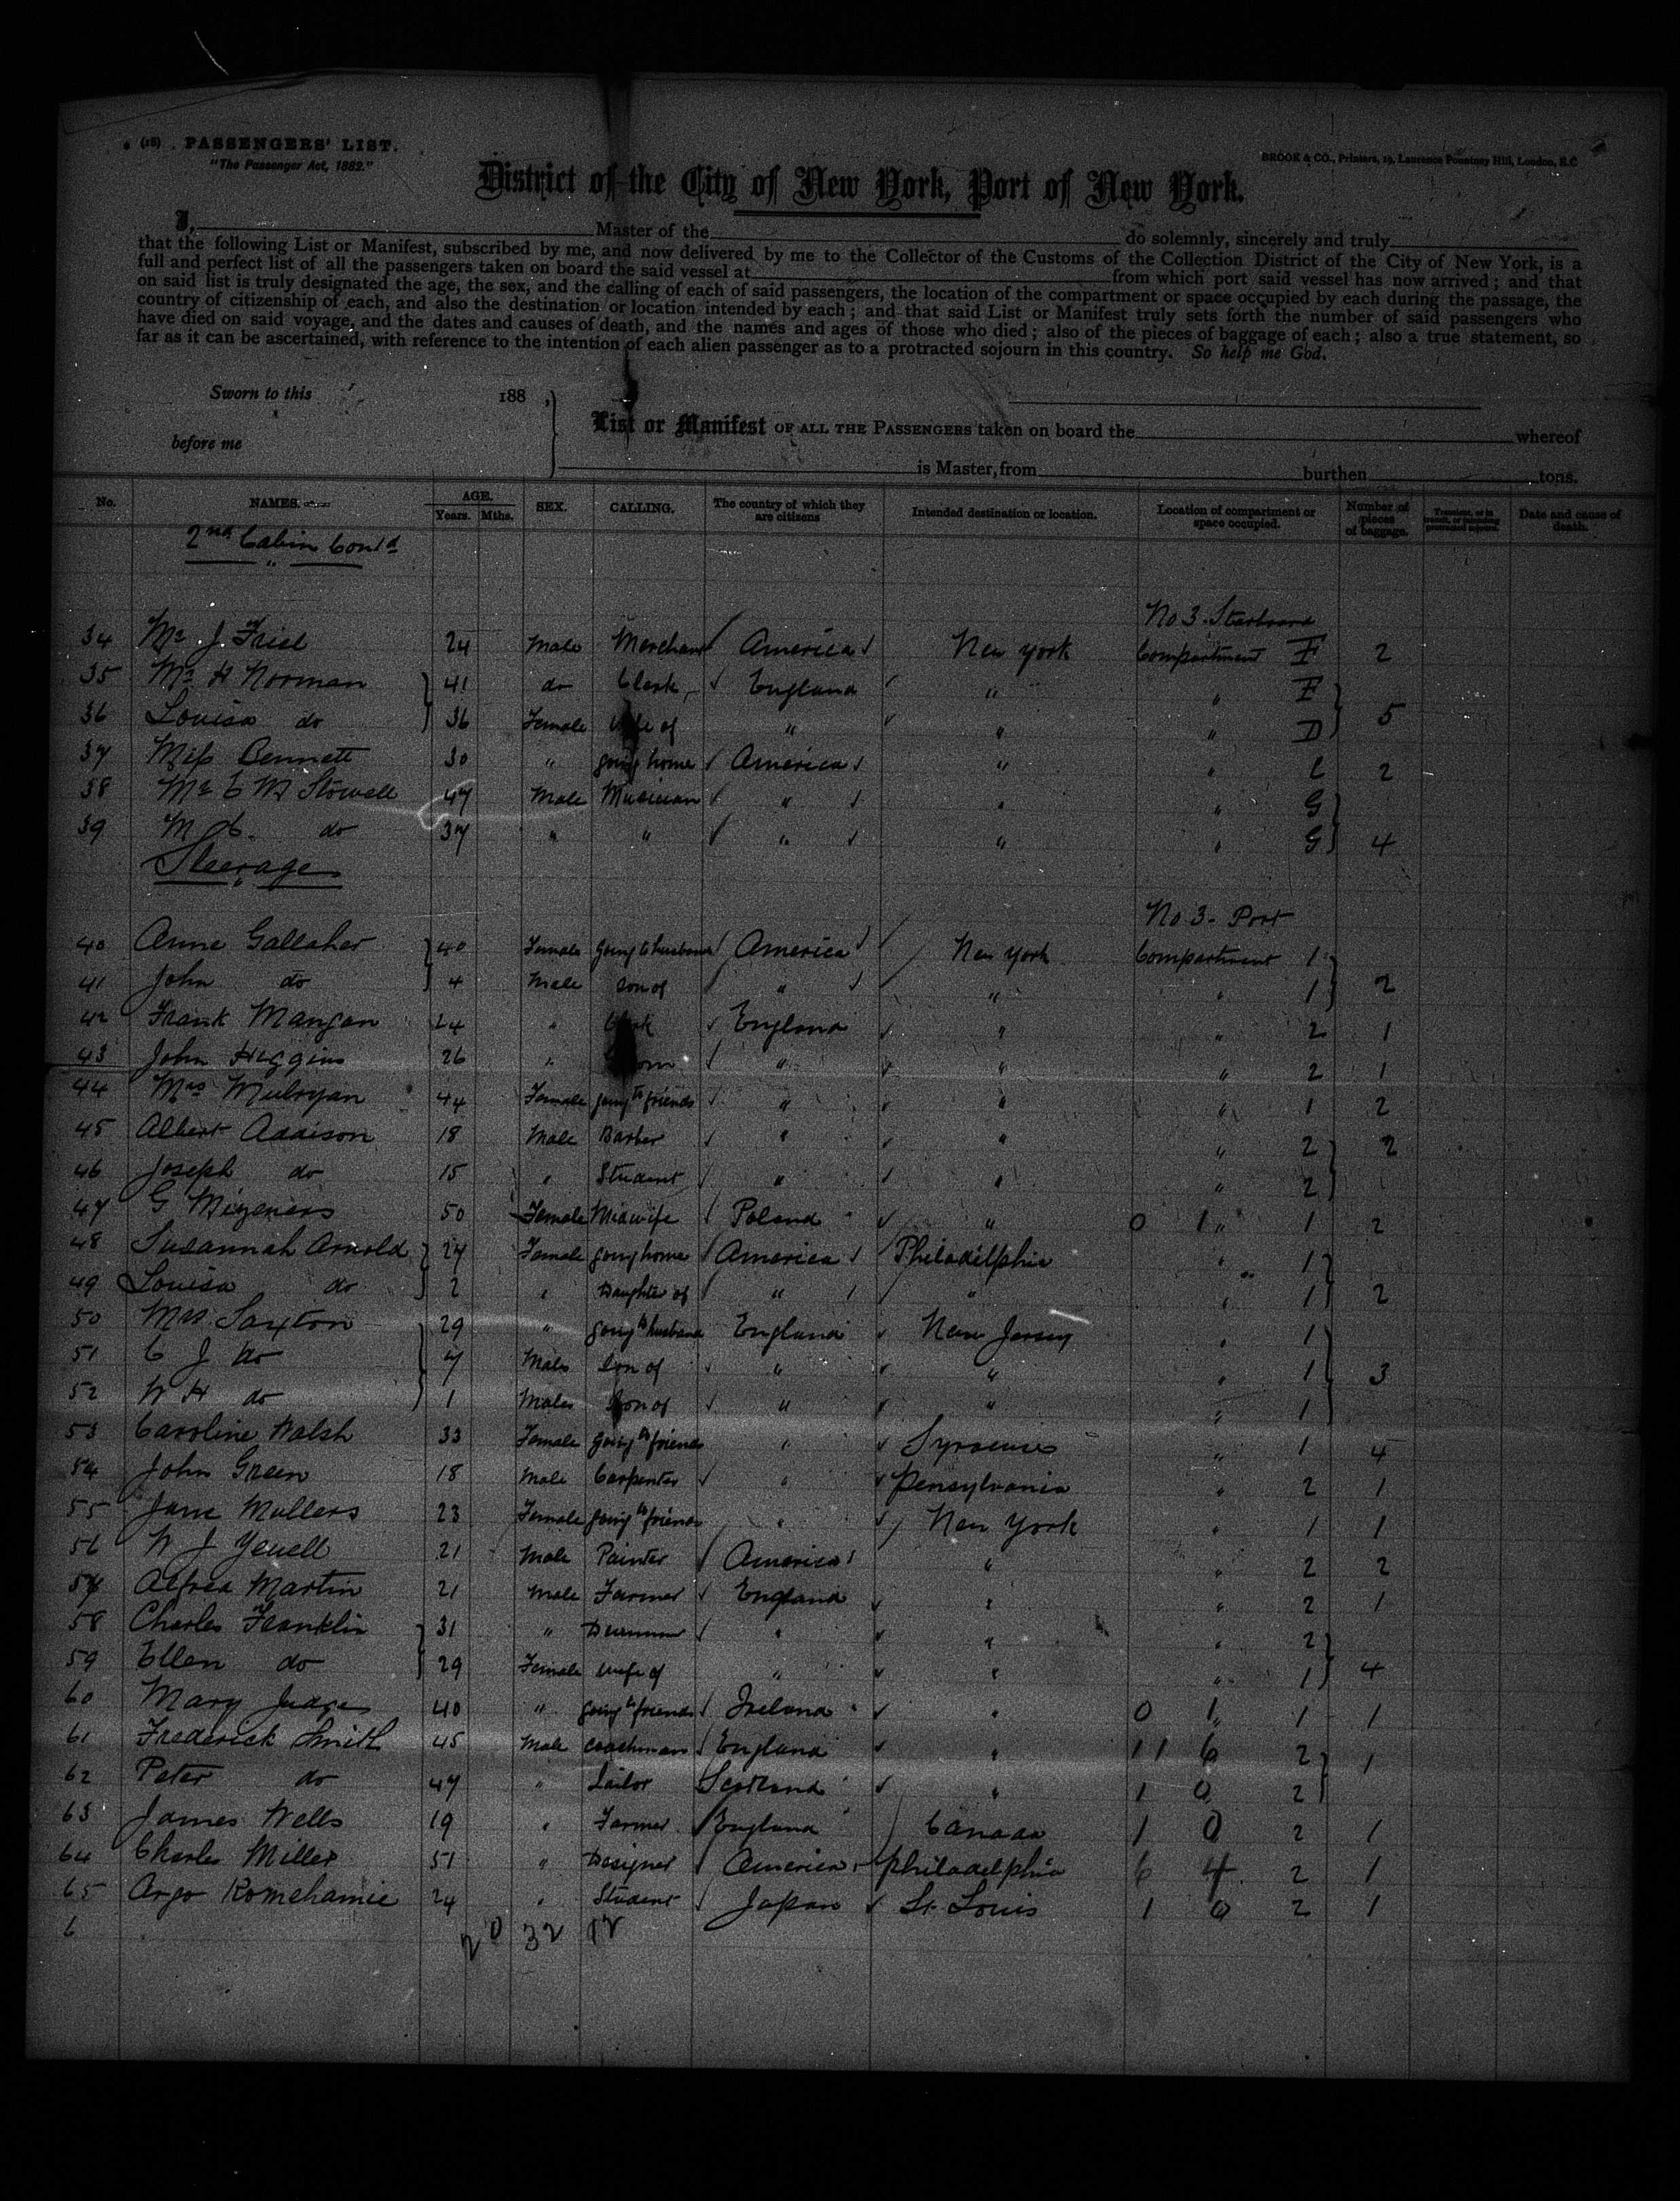 (18) PASSENGERS' LIST.
"The Passenger Act, 1882."
BROOK & CO., Printers, 19, Laurence Pountney Hill, London, E.C
District of the City of New York, Port of New York.
I, Master of the do solemnly, sincerely and truly
that the following List or Manifest, subscribed by me, and now delivered by me to the Collector of the Customs of the Collection District of the City of New York, is a
full and perfect list of all the passengers taken on board the said vessel at from which port said vessel has now arrived; and that
on said list is truly designated the age, the sex, and the calling of each of said passengers, the location of the compartment or space occupied by each during the passage, the
country of citizenship of each, and also the destination or location intended by each; and that said List or Manifest truly sets forth the number of said passengers who
have died on said voyage, and the dates and causes of death, and the names and ages of those who died; also of the pieces of baggage of each; also a true statement, so
far as it can be ascertained, with reference to the intention of each alien passenger as to a protracted sojourn in this country. So help me God.
Sworn to this 188 ,
before me
List or Manifest OF ALL THE PASSENGERS taken on board the whereof
is Master, from burthen tons.
No. NAMES. AGE. Years. Mths. SEX. CALLING. The country of which they are citizens Intended destination or location. Location of compartment or space occupied. Number of pieces of baggage. Transient, or in transit, or intending protracted sojourn. Date and cause of death.
2nd Cabin Contd
No 3. Starboard
34 Mr J Friel 24 Male Merchant America New York Compartment F 2
35 Mr H Norman 41 do Clerk England " " F
36 Louisa do 36 Female Wife of " " " D 5
37 Miss Bennett 30 " going home America " " C 2
38 Mr C M Stowell 47 Male Musician " " " G
39 do 37 " " " " " G 4
Steerage
No 3. Port
40 Anne Gallaher 40 Female going to husband America New York Compartment 1
41 John do 4 Male son of " " " 1 2
42 Frank Mangan 24 " Clerk England " " 2 1
43 John Higgins 26 " " " " 2 1
44 Mrs Mulryan 44 Female going to friends " " " 1 2
45 Albert Addison 18 Male Barber " " " 2 2
46 Joseph do 15 " Student " " " 2
47 G 50 Female Midwife Poland " 0 1 " 1 2
48 Susannah Arnold 27 Female going home America Philadelphia " 1
49 Louisa do 2 " Daughter of " " " 1 2
50 Mrs Saxton 29 " going to husband England New Jersey " 1
51 C J do 7 Male Son of " " " 1 3
52 W H do 1 Male Son of " " " 1
53 Caroline Walsh 33 Female going to friends " Syracuse " 1 4
54 John Green 18 Male Carpenter " Pensylvania " 2 1
55 Jane Mullers 23 Female going to friends " New York " 1 1
56 W J Yeuell 21 Male Painter America " " 2 2
57 Alfred Martin 21 Male Farmer England " " 2 1
58 Charles Franklin 31 " " " " 2
59 Ellen do 29 Female wife of " " " 1 4
60 Mary Judge 40 " going to friends Ireland " 0 1 " 1 1
61 Frederick Smith 45 Male coachman England " 11 6 2 1
62 Peter do 47 " Sailor Scotland " 1 0 2
63 James Wells 19 " Farmer England Canada 1 0 2 1
64 Charles Miller 51 " Designer America Philadelphia 6 4 2 1
65 Argo Komehamie 24 " Student Japan St. Louis 1 0 2 1
6 20 32 12